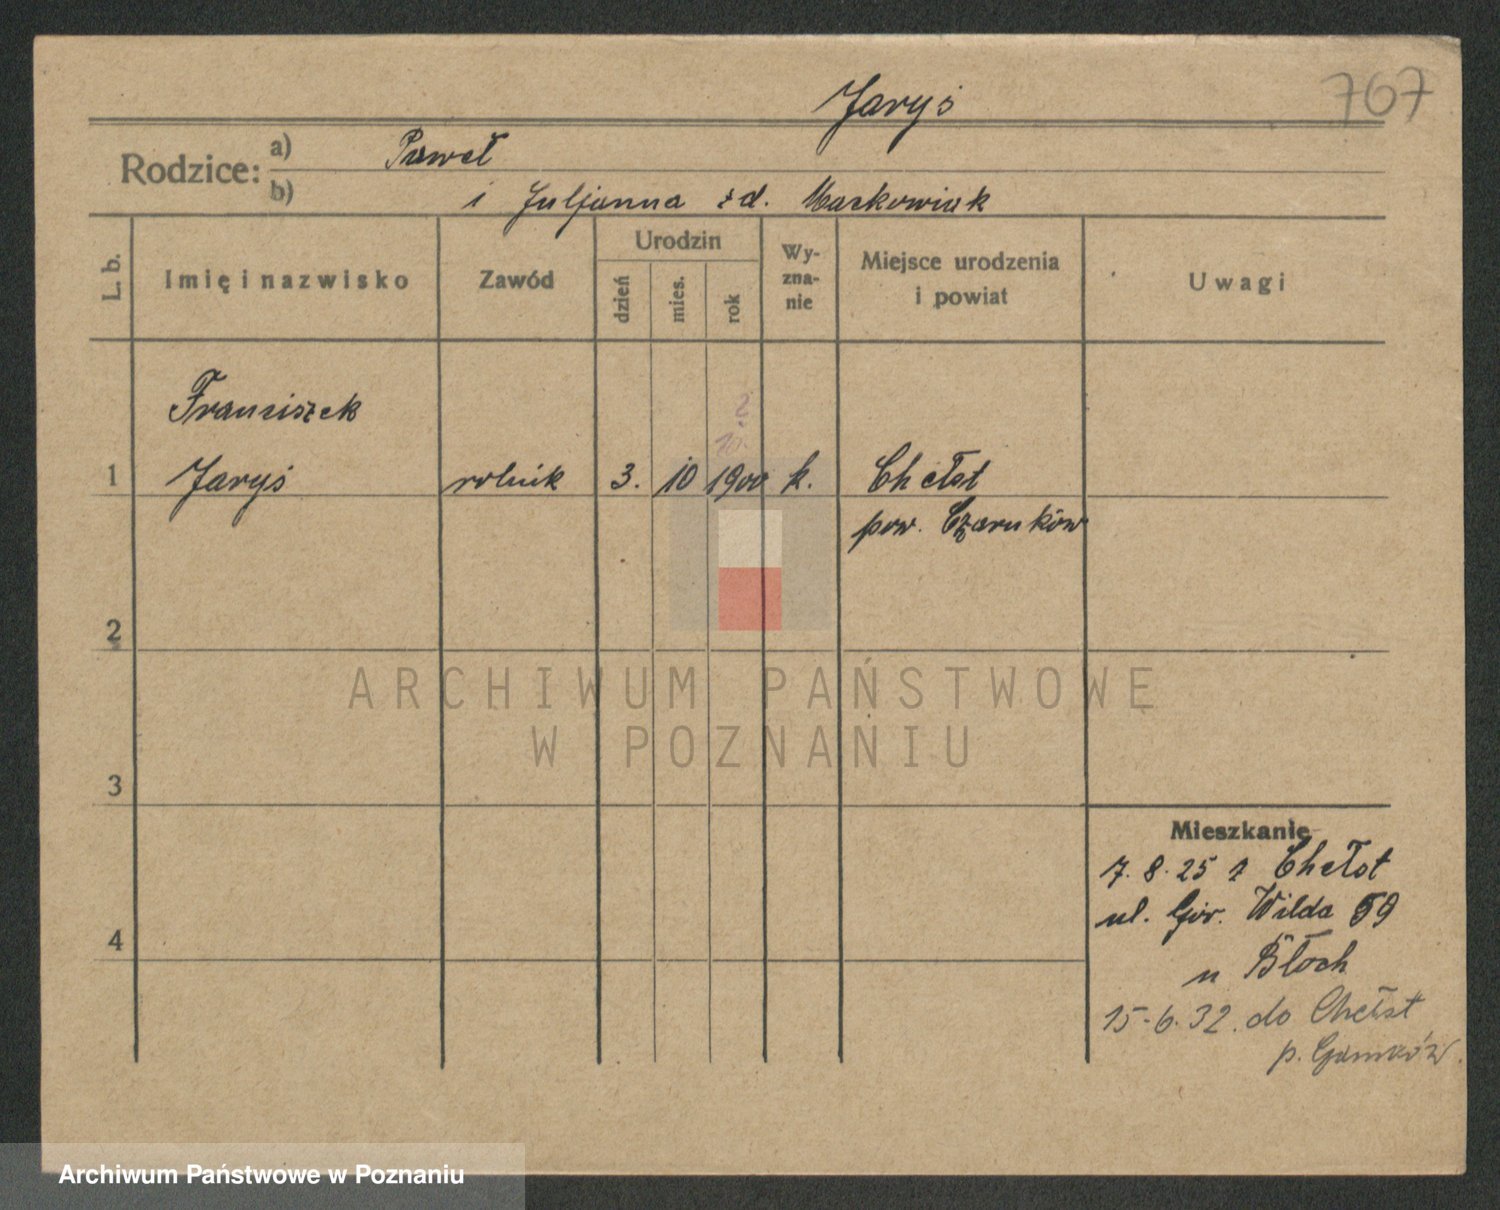 767
Jaryś
Rodzice: a) Paweł
b) i Juljanna zd. Maćkowiak
L. b.
Imię i nazwisko
Zawód
Urodzin
dzień
mies.
rok
Wy-
zna-
nie
Miejsce urodzenia
i powiat
Uwagi
Franciszek
2.
10.
1 Jaryś rolnik 3. 10 1900 k. Chełst
pow. Czarnków
2
3
4
Mieszkanie
7. 8. 25 z Chełst
ul. Gór. Wilda 59
u Błoch
15-6.32. do Chełst
ARCHIWUM PAŃSTWOWE
W POZNANIU
Archiwum Państwowe w Poznaniu